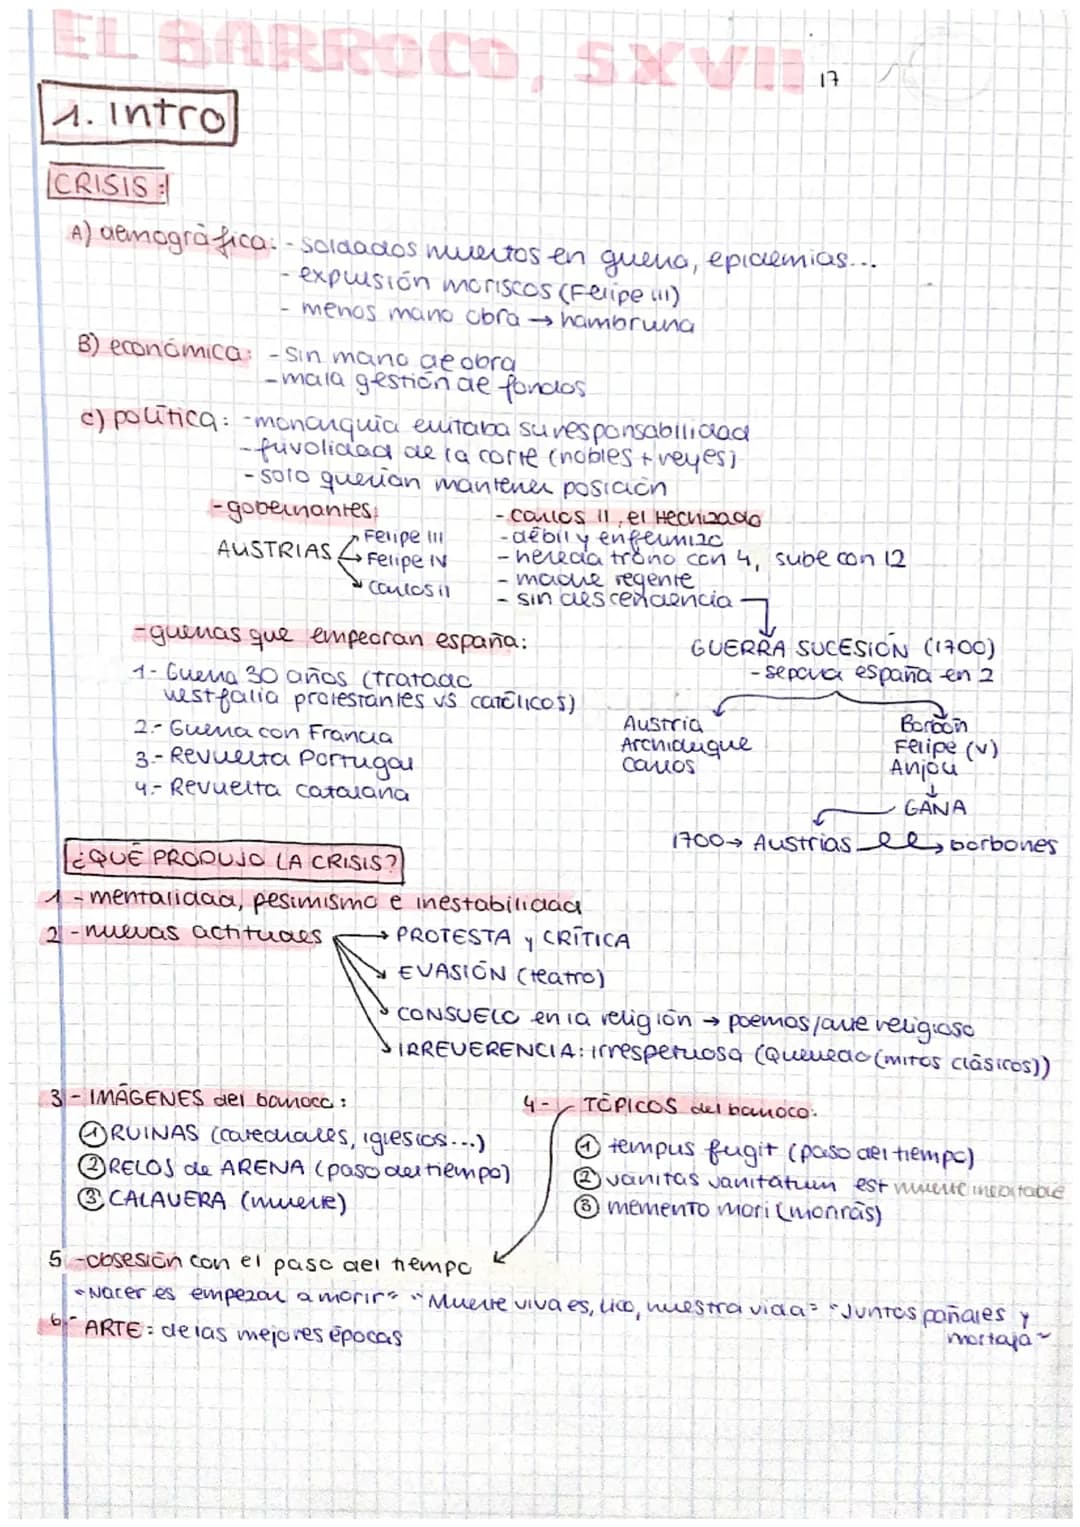 EL BARROCO, SXVII
17
1. Intro
CRISIS:
A) demográfica: - soldados muertos en guerra, epidemias...
- expulsión moriscos (Felipe III)
- menos mano obra → hambruna
B) económica: - sin mano de obra
- mala gestión de fondos
C) política: - monarquía evitaba su responsabilidad
- frivolidad de la corte (nobles + reyes)
- solo querían mantener posición
- gobernantes:
AUSTRIAS
Felipe III
Felipe IV
Carlos II
- Carlos II, el Hechizado
- débil y enfermizo
- hereda trono con 4, sube con 12
- madre regente
- sin descendencia
GUERRA SUCESIÓN (1700)
- separa españa en 2
Austria
Archiduque
Carlos
Borbón
Felipe (V)
Anjou
↓
GANA
1700→ Austrias → borbones
- guerras que empeoran españa:
1- Guerra 30 años (tratado
westfalia protestantes vs católicos)
2.- Guerra con Francia
3.- Revuelta Portugal
4.- Revuelta catalana
¿QUÉ PRODUJO LA CRISIS?
1 - mentalidad, pesimismo e inestabilidad
2 - nuevas actitudes → PROTESTA y CRÍTICA
EVASIÓN (teatro)
CONSUELO en la religión → poemos/arte religioso
IRREVERENCIA: irrespetuosa (Quevedo (mitos clásicos))
3 - IMÁGENES del barroco:
① RUINAS (catedrales, iglesias...)
② RELOJ de ARENA (paso del tiempo)
③ CALAVERA (muerte)
4 - TÓPICOS del barroco:
① tempus fugit (paso del tiempo)
② vanitas vanitatum est muerte inevitable
③ memento mori (morirás)
5 - obsesión con el paso del tiempo
"Nacer es empezar a morir" "Muerte viva es, Lico, nuestra vida" "Juntos pañales y
mortaja"
6 - ARTE: de las mejores épocas